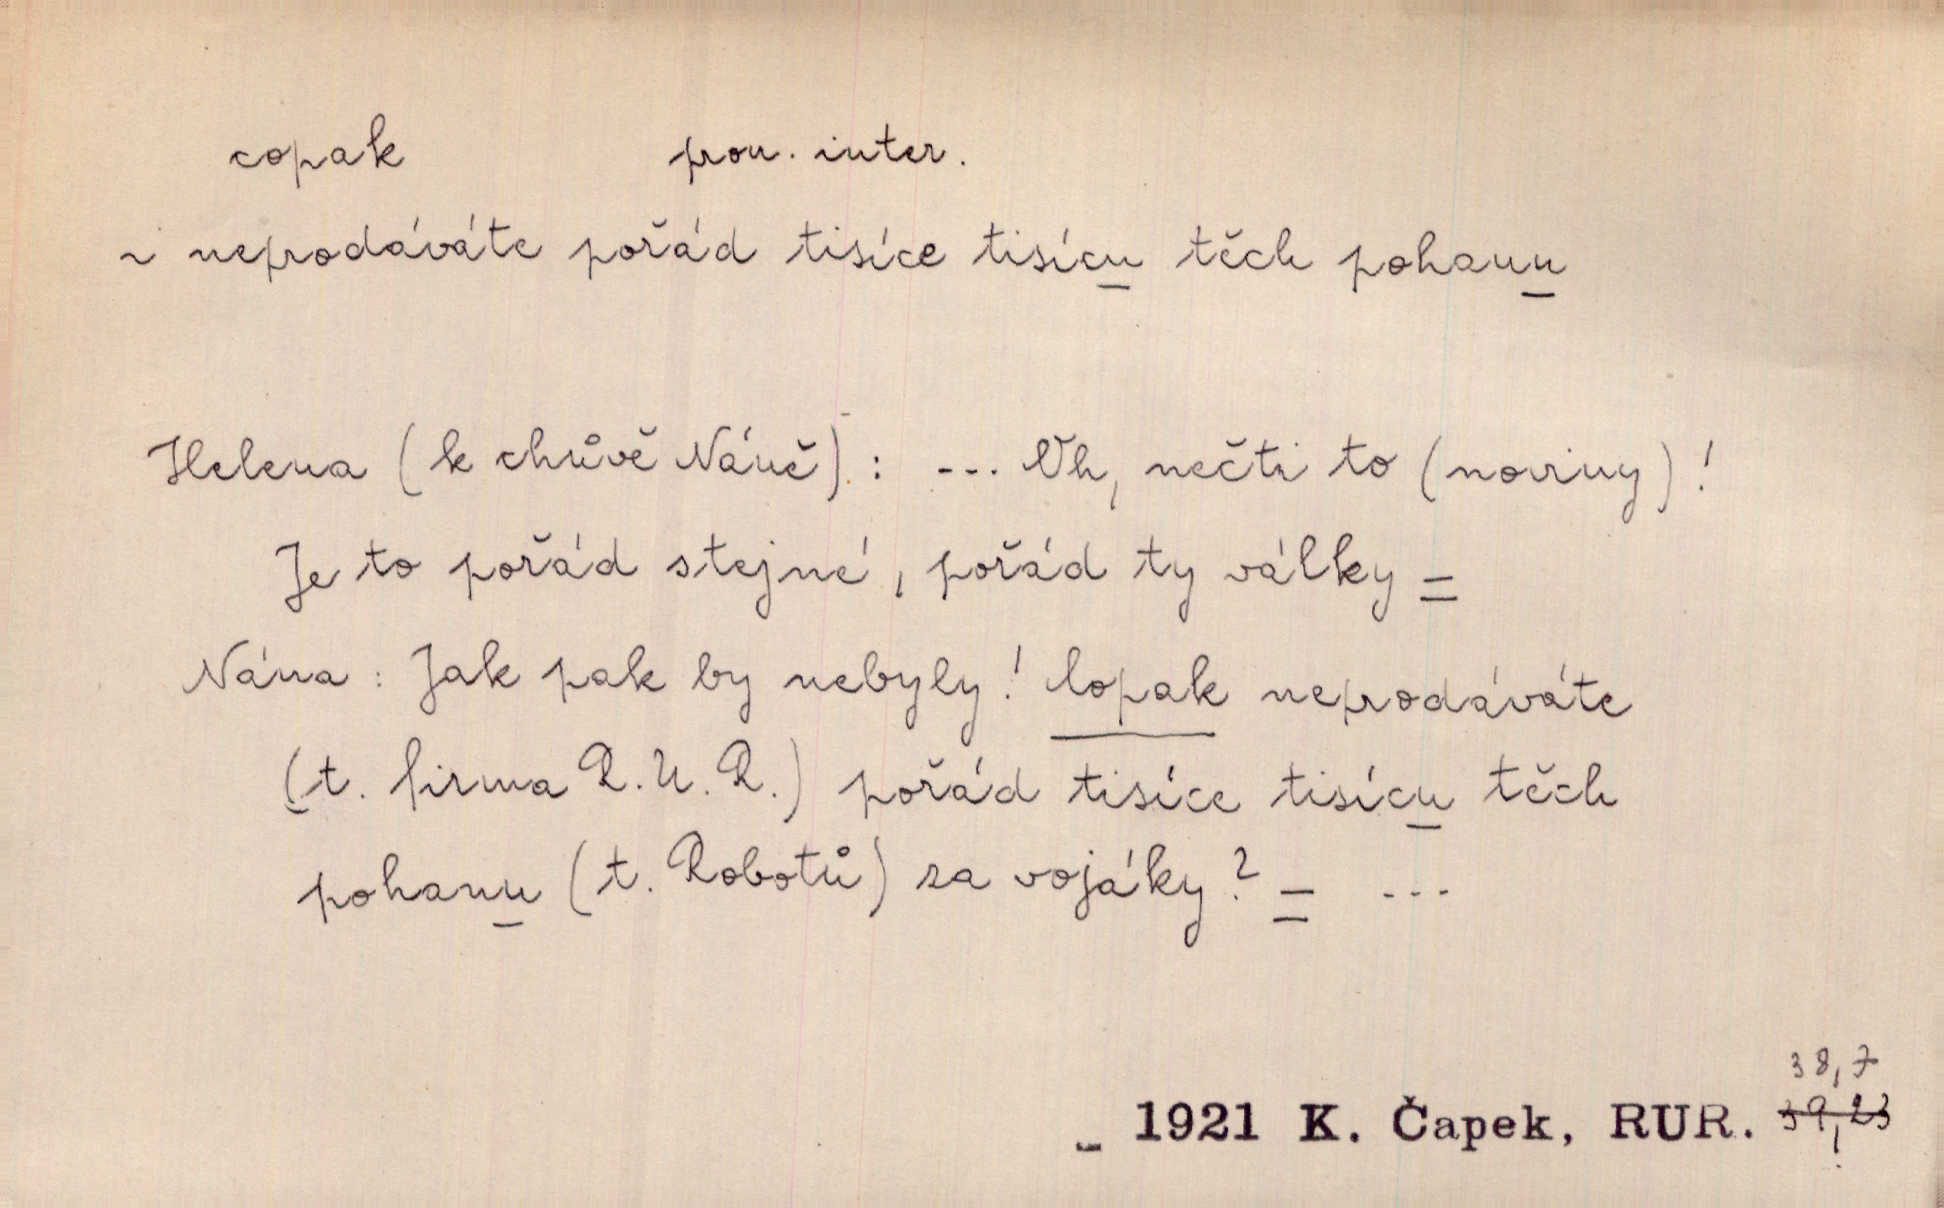 copak pron. inter.
~ neprodáváte pořád tisíce tisícu těch pohanu
Helena (k chůvě Náně): --- Uh, nečti to (noviny)!
Je to pořád stejné, pořád ty války =
Nána: Jak pak by nebyly! Copak neprodáváte
(t. firma R.U.R.) pořád tisíce tisícu těch
pohanu (t. Robotů) za vojáky? = ---
38,7
1921 K. Čapek, RUR. 39,23